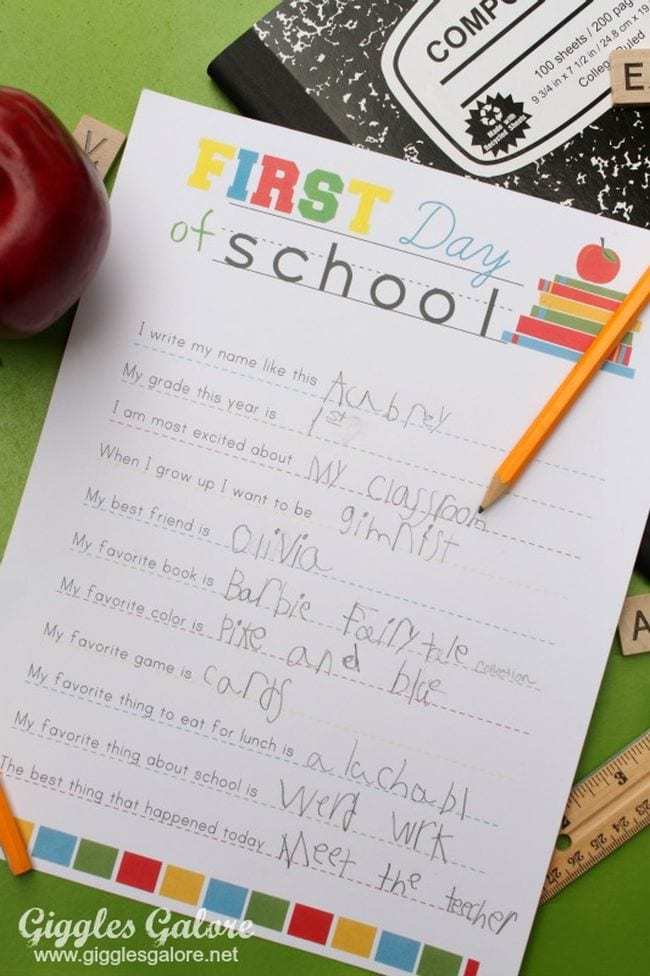 COMPO
100 sheets / 200 pag
9 3/4 in x 7 1/2 in / 24.8 cm x 19
College Ruled
Made with Recycled Sheets
E
K
FIRST Day
of school
I write my name like this Aubrey
My grade this year is 1st
I am most excited about My classroom
When I grow up I want to be gimnist
My best friend is Olivia
My favorite book is Barbie Fairytale collection
My favorite color is Pixe and blue
My favorite game is cards
My favorite thing to eat for lunch is a luchabl
My favorite thing about school is Werd wrk
The best thing that happened today Meet the teacher
A
5
26 25 24
Giggles Galore
www.gigglesgalore.net